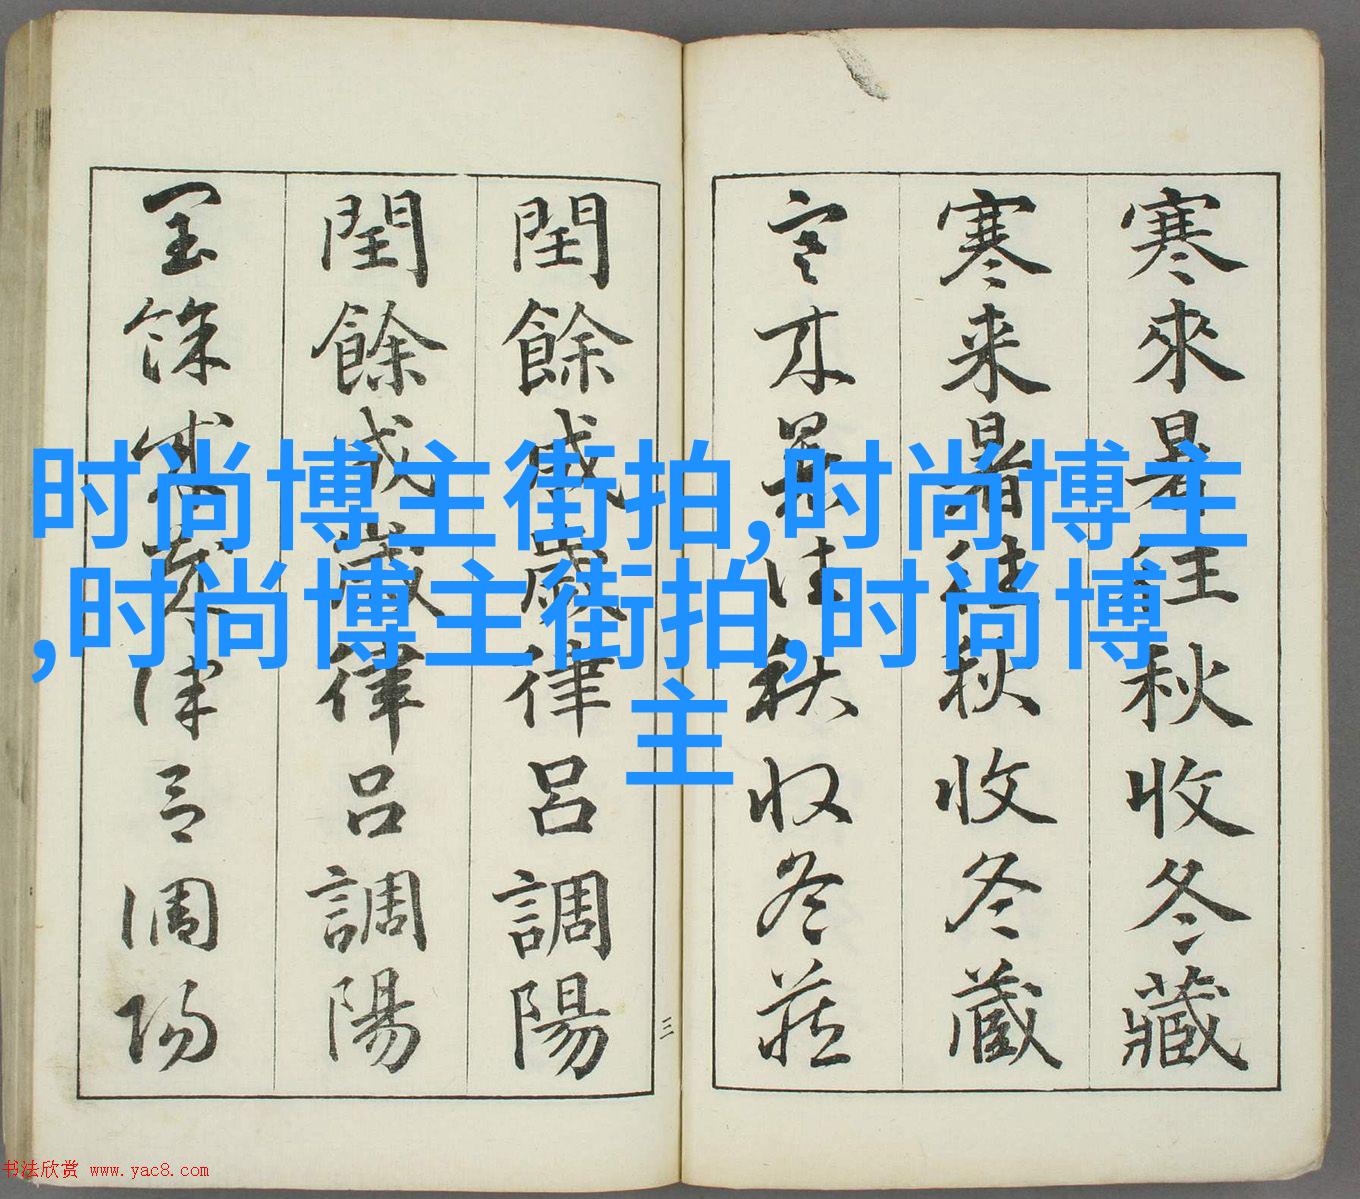 寒來暑往秋收冬藏
寒来暑往秋收冬蔵
寒来暑往秋収冬蔵
閏餘成歲律呂調陽
閏餘成歲律吕調陽
閏餘成歲律呂調陽
三
时尚博主街拍,时尚博主
,时尚博主街拍,时尚博
主
书法欣赏 www.yac8.com